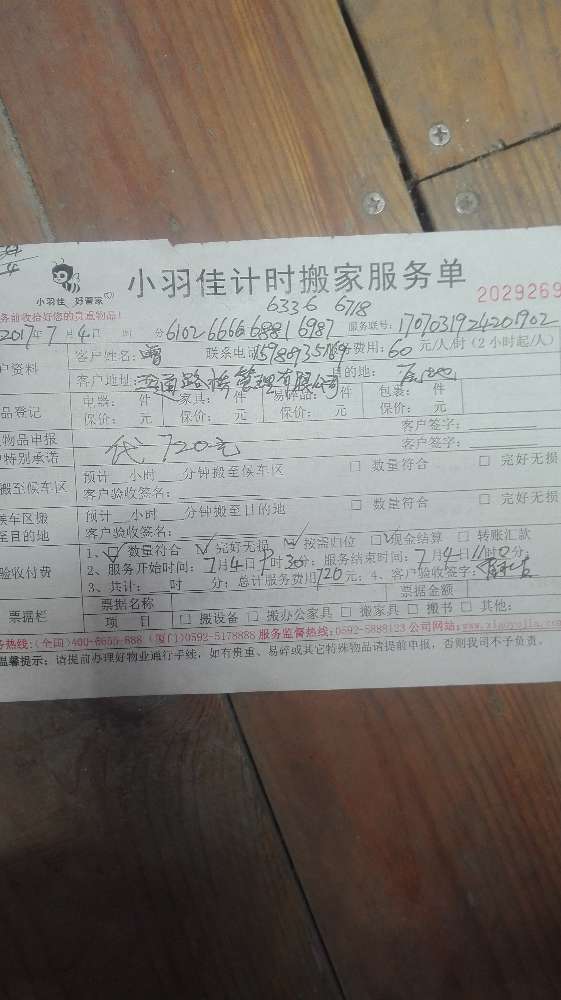 小羽佳 好管家
小羽佳计时搬家服务单
2029269
务前收拾好您的贵重物品!
6336 6718
2017年7月4日 时 分 6102 6666 6881 6987 服务联号: 1707031924201902
户资料 客户姓名: 联系电话: 费用: 60 元/人/时 (2小时起/人)
客户地址: 路桥管理有限公司 目的地:
品登记 电器: 件 家具: 件 易碎品: 件 包装: 件
保价: 元 保价: 元 保价: 元 保价: 元
物品申报 客户签字:
特别承诺 720元 客户签字:
搬至候车区 预计 小时 分钟搬至候车区 □ 数量符合 □ 完好无损
客户验收签名:
候车区搬至目的地 预计 小时 分钟搬至目的地 □ 数量符合 □ 完好无损
客户验收签名:
验收付费 1、☑ 数量符合 ☑ 完好无损 ☑ 按需归位 □ 现金结算 □ 转账汇款
2、服务开始时间: 7月4日 时30分; 服务结束时间: 7月4日11时0分;
3、共计: 时 分; 总计服务费用720元; 4、客户验收签字:
票据栏 票据名称 票据金额
项目 □ 搬设备 □ 搬办公家具 □ 搬家具 □ 搬书 □ 其他:
务热线:(全国)400-6655-888 (厦门)0592-5178888 服务监督热线:0592-5888123 公司网站:www.xiaoyujia.com
温馨提示: 请提前办理好物业通行手续, 如有贵重、易碎或其它特殊物品请提前申报, 否则我司不予负责。